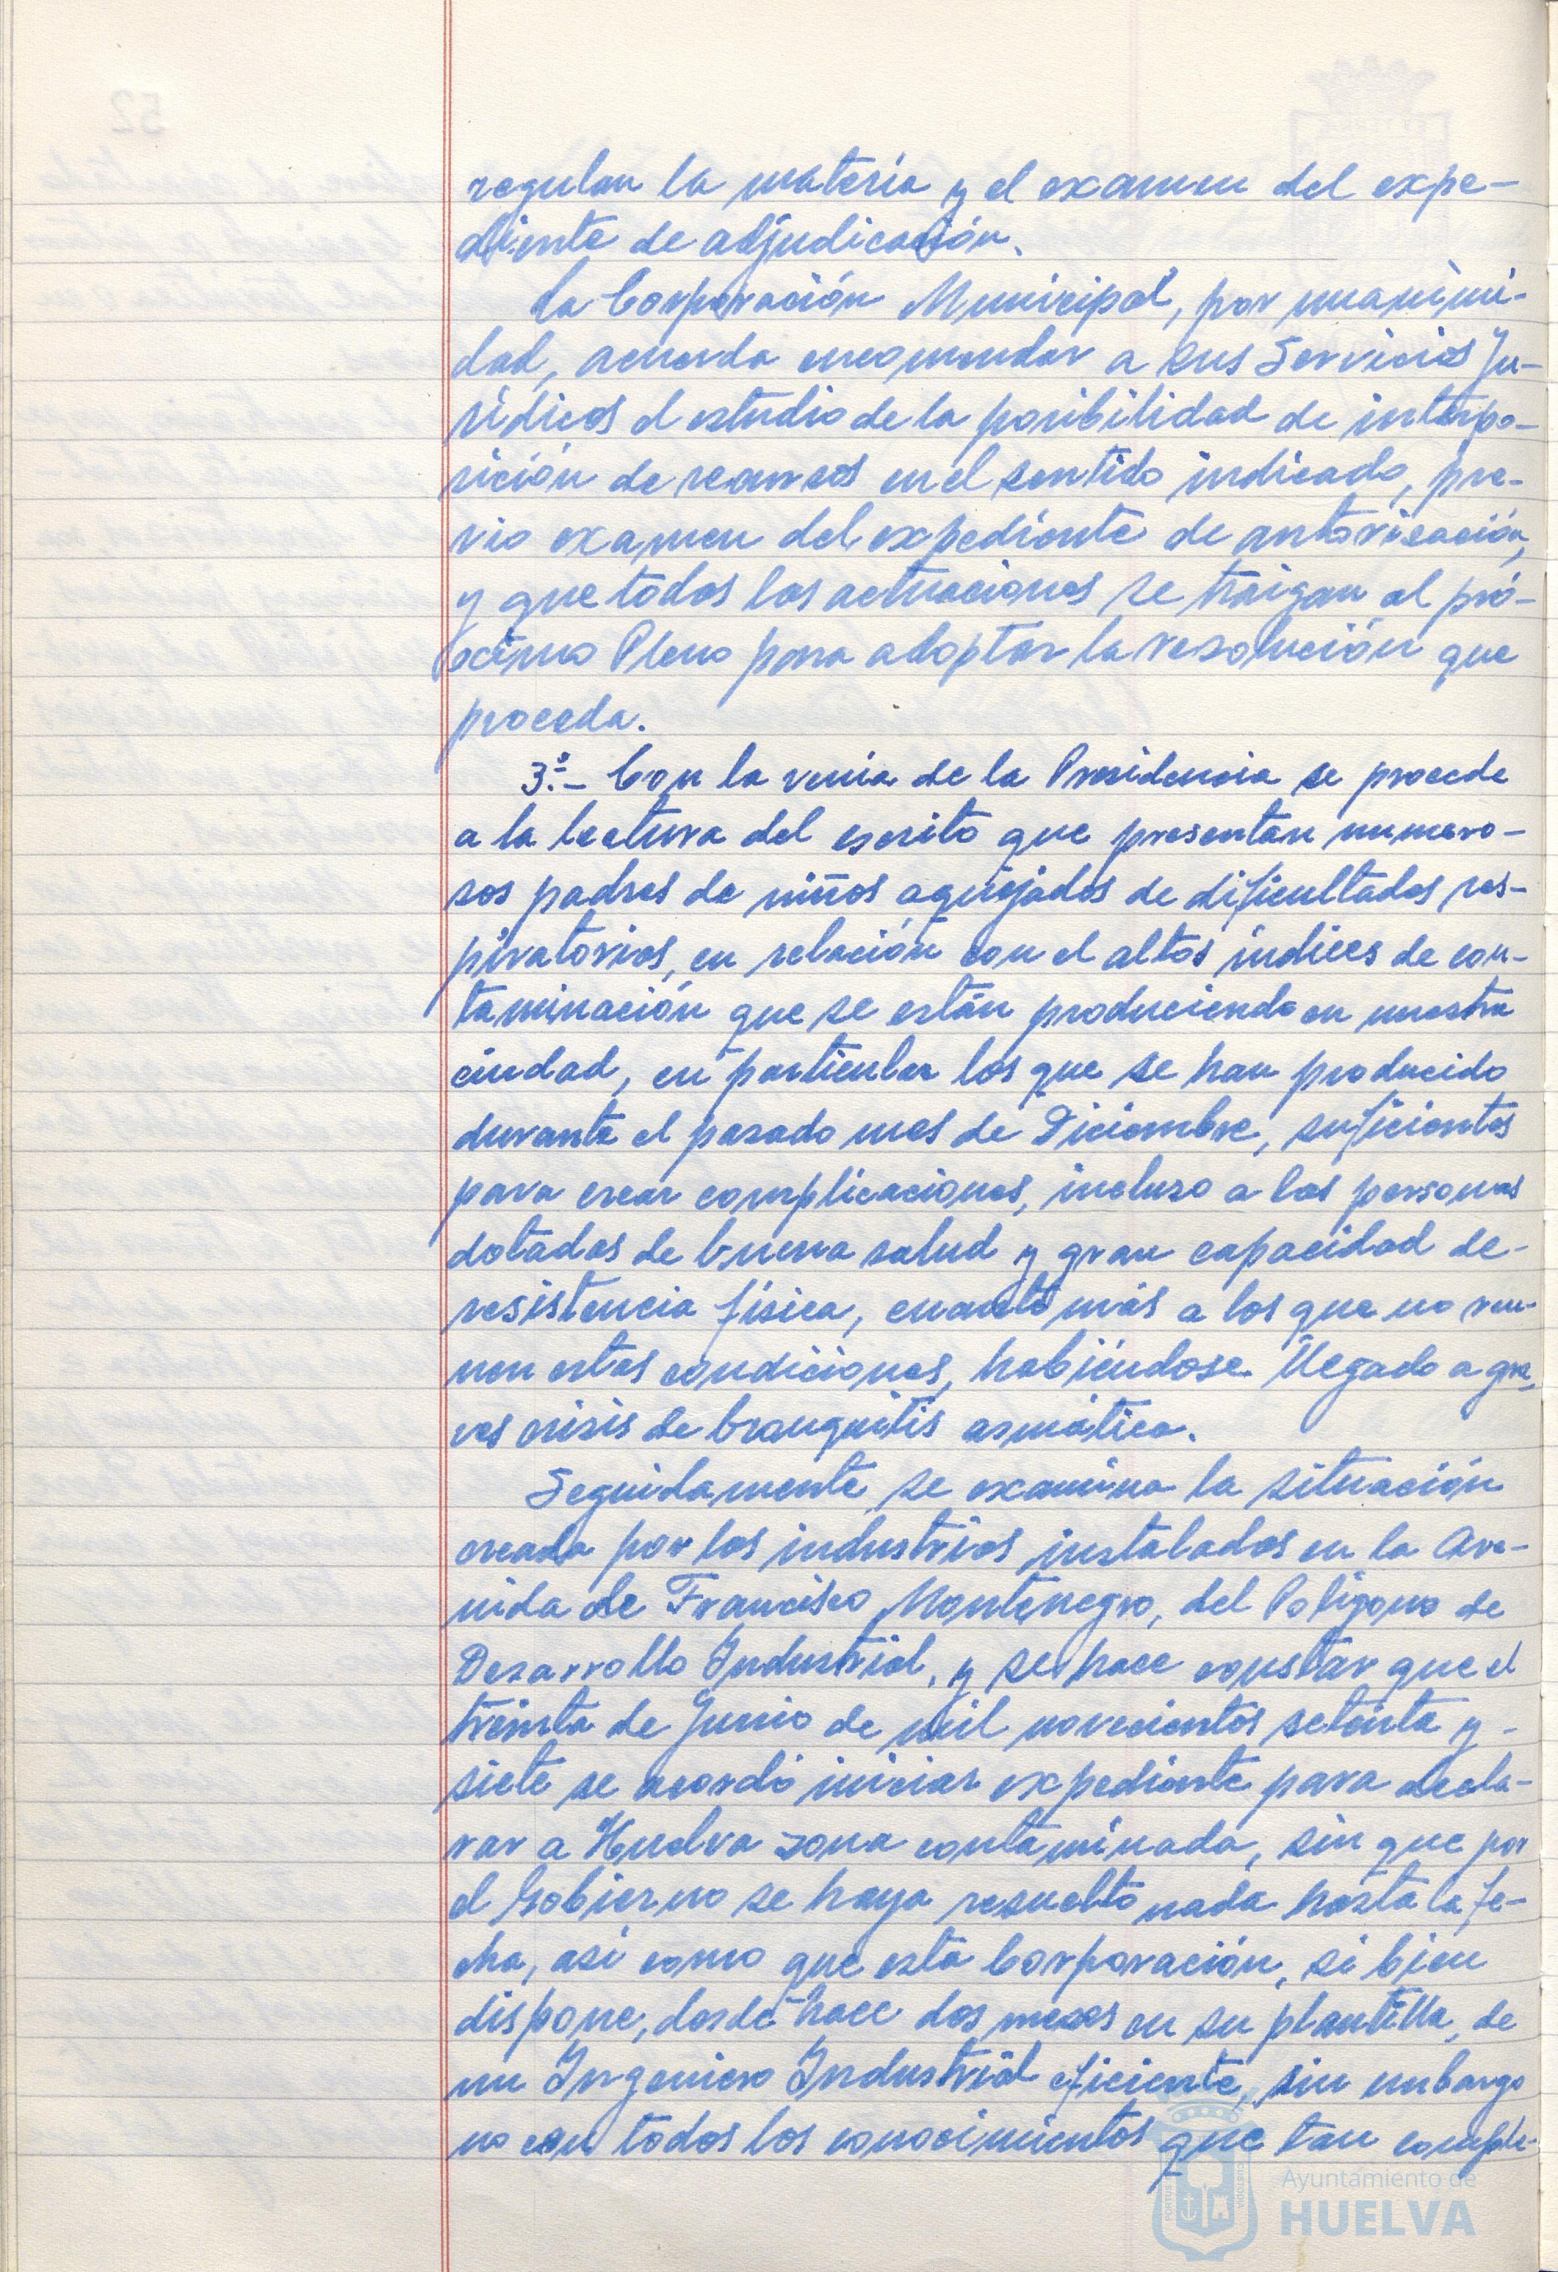 regulan la materia y el examen del expe-
diente de adjudicación.
La Corporación Municipal, por unanimi-
dad, acuerda encomendar a sus Servicios Ju-
rídicos el estudio de la posibilidad de interpo-
sición de recursos en el sentido indicado, pre-
vio examen del expediente de autorización,
y que todas las actuaciones se traigan al pró-
ximo Pleno para adoptar la resolución que
proceda.
3º.- Con la venia de la Presidencia se procede
a la lectura del escrito que presentan numero-
sos padres de niños aquejados de dificultades res-
piratorias, en relación con el altos índices de con-
taminación que se están produciendo en nuestra
ciudad, en particular los que se han producido
durante el pasado mes de Diciembre, suficientes
para crear complicaciones, incluso a las personas
dotadas de buena salud y gran capacidad de-
resistencia física, cuanto más a los que no reu-
nen estas condiciones, habiéndose llegado a gra-
ves crisis de bronquitis asmática.
Seguidamente se examina la situación
creada por las industrias instaladas en la Ave-
nida de Francisco Montenegro, del Polígono de
Desarrollo Industrial, y se hace constar que el
treinta de Junio de mil novecientos setenta y -
siete se acordó iniciar expediente para decla-
rar a Huelva zona contaminada, sin que por
el Gobierno se haya resuelto nada hasta la fe-
cha, así como que esta Corporación, si bien
dispone, desde hace dos meses en su plantilla, de
un Ingeniero Industrial eficiente, sin embargo
no con todos los conocimientos que tan comple-
Ayuntamiento de
HUELVA